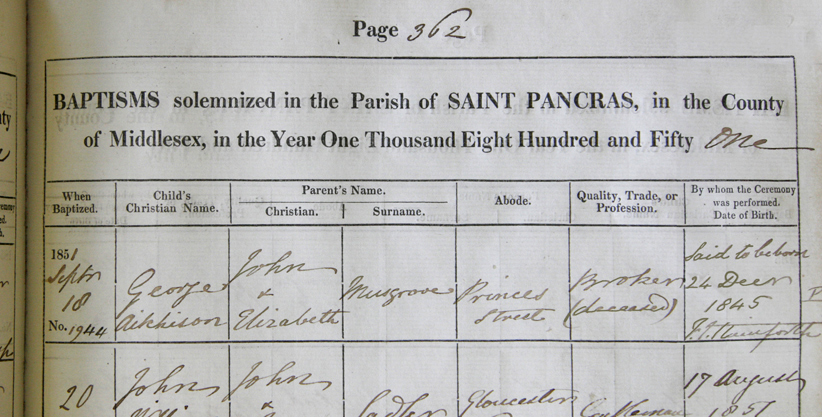 Page 362
BAPTISMS solemnized in the Parish of SAINT PANCRAS, in the County
of Middlesex, in the Year One Thousand Eight Hundred and Fifty One
When Baptized.
Child's Christian Name.
Parent's Name.
Christian.
Surname.
Abode.
Quality, Trade, or Profession.
By whom the Ceremony was performed. Date of Birth.
1851
Septr
18
No. 1944
George
Aitkhison
John
&
Elizabeth
Musgrove
Princes
Street
Broker
(deceased)
Said to be born
24 Decr
1845
20
John
John
&
Sadler
Gloucester
17 August
1851